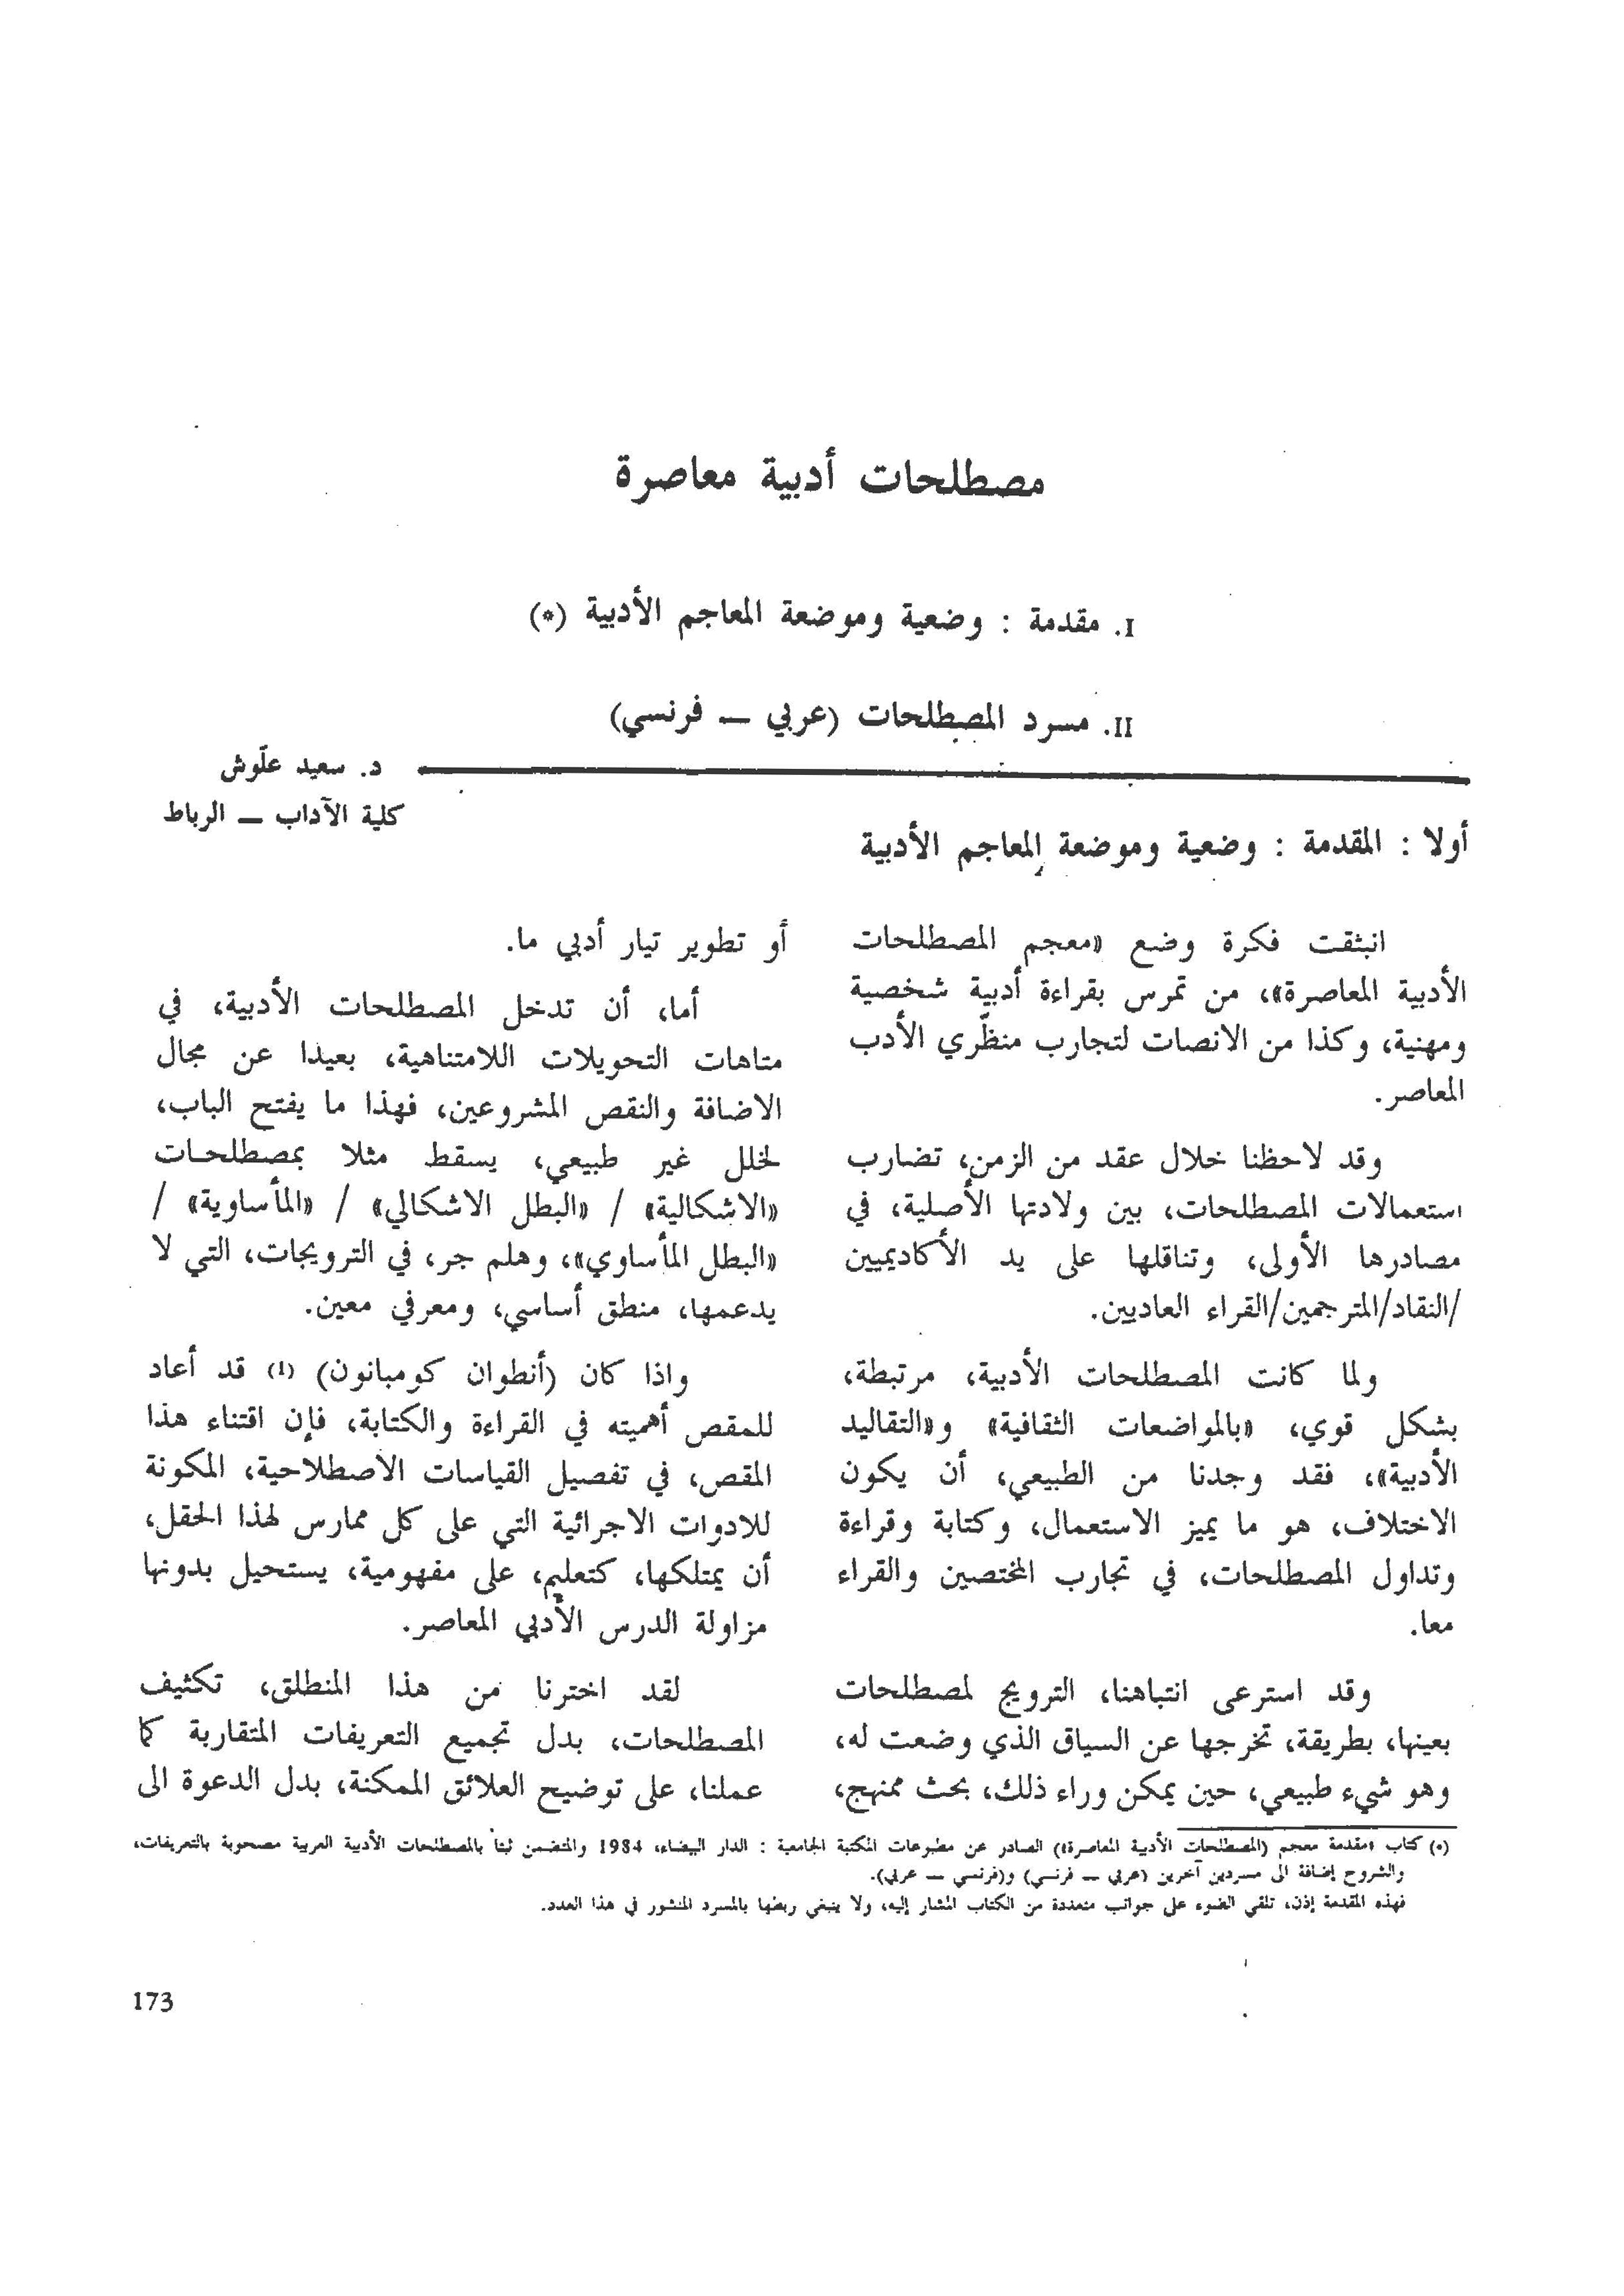 مصطلحات أدبية معاصرة
I. مقدمة : وضعية وموضعة المعاجم الأدبية (*)
II. مسرد المصطلحات (عربي — فرنسي)
د. سعيد علّوش
كلية الآداب — الرباط
أولا : المقدمة : وضعية وموضعة المعاجم الأدبية
انبثقت فكرة وضع «معجم المصطلحات
الأدبية المعاصرة»، من تمرس بقراءة أدبية شخصية
ومهنية، وكذا من الانصات لتجارب منظّري الأدب
المعاصر.
وقد لاحظنا خلال عقد من الزمن، تضارب
استعمالات المصطلحات، بين ولادتها الأصلية، في
مصادرها الأولى، وتناقلها على يد الأكاديميين
/النقاد/المترجمين/القراء العاديين.
ولما كانت المصطلحات الأدبية، مرتبطة،
بشكل قوي، «بالمواضعات الثقافية» و«التقاليد
الأدبية»، فقد وجدنا من الطبيعي، أن يكون
الاختلاف، هو ما يميز الاستعمال، وكتابة وقراءة
وتداول المصطلحات، في تجارب المختصين والقراء
معا.
وقد استرعى انتباهنا، الترويج لمصطلحات
بعينها، بطريقة، تخرجها عن السياق الذي وضعت له،
وهو شيء طبيعي، حين يمكن وراء ذلك، بحث ممنهج،
أو تطوير تيار أدبي ما.
أما، أن تدخل المصطلحات الأدبية، في
متاهات التحويلات اللامتناهية، بعيدا عن مجال
الاضافة والنقص المشروعين، فهذا ما يفتح الباب،
لخلل غير طبيعي، يسقط مثلا بمصطلحات
«الاشكالية» / «البطل الاشكالي» / «المأساوية» /
«البطل المأساوي»، وهلم جر، في الترويجات، التي لا
يدعمها، منطق أساسي، ومعرفي معين.
واذا كان (أنطوان كومبانون) (1) قد أعاد
للمقص أهميته في القراءة والكتابة، فإن اقتناء هذا
المقص، في تفصيل القياسات الاصطلاحية، المكونة
للادوات الاجرائية التي على كل ممارس لهذا الحقل،
أن يمتلكها، كتعليم، على مفهومية، يستحيل بدونها
مزاولة الدرس الأدبي المعاصر.
لقد اخترنا من هذا المنطلق، تكثيف
المصطلحات، بدل تجميع التعريفات المتقاربة كما
عملنا، على توضيح العلائق الممكنة، بدل الدعوة الى
(*) كتاب «مقدمة معجم (المصطلحات الأدبية المعاصرة») الصادر عن مطبوعات المكتبة الجامعية : الدار البيضاء، 1984 والمتضمن ثبتا بالمصطلحات الأدبية العربية مصحوبة بالتعريفات،
والشروح إضافة الى مسردين آخرين (عربي — فرنسي) و(فرنسي — عربي).
فهذه المقدمة إذن، تلقي الضوء على جوانب متعددة من الكتاب المشار إليه، ولا ينبغي ربطها بالمسرد المنشور في هذا العدد.
173